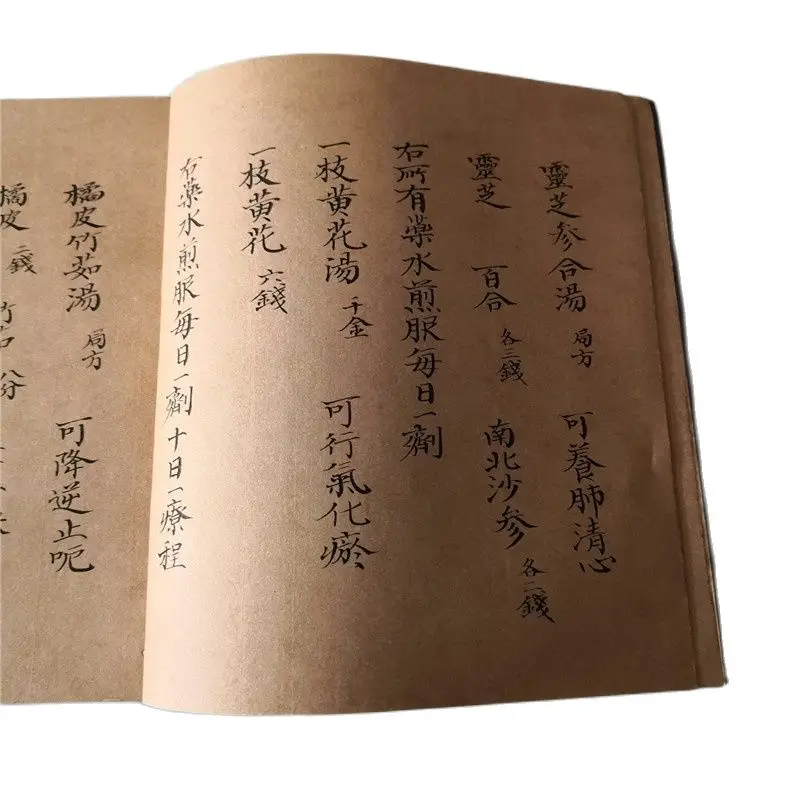 靈芝參合湯 局方 可養肺清心
靈芝 百合 各三錢 南北沙參 各二錢
右所有藥水煎服每日一劑
一枝黄花湯 千金 可行氣化瘀
一枝黄花 六錢
右藥水煎服每日一劑十日一療程
橘皮竹茹湯 局方 可降逆止呃
橘皮 二錢 竹茹